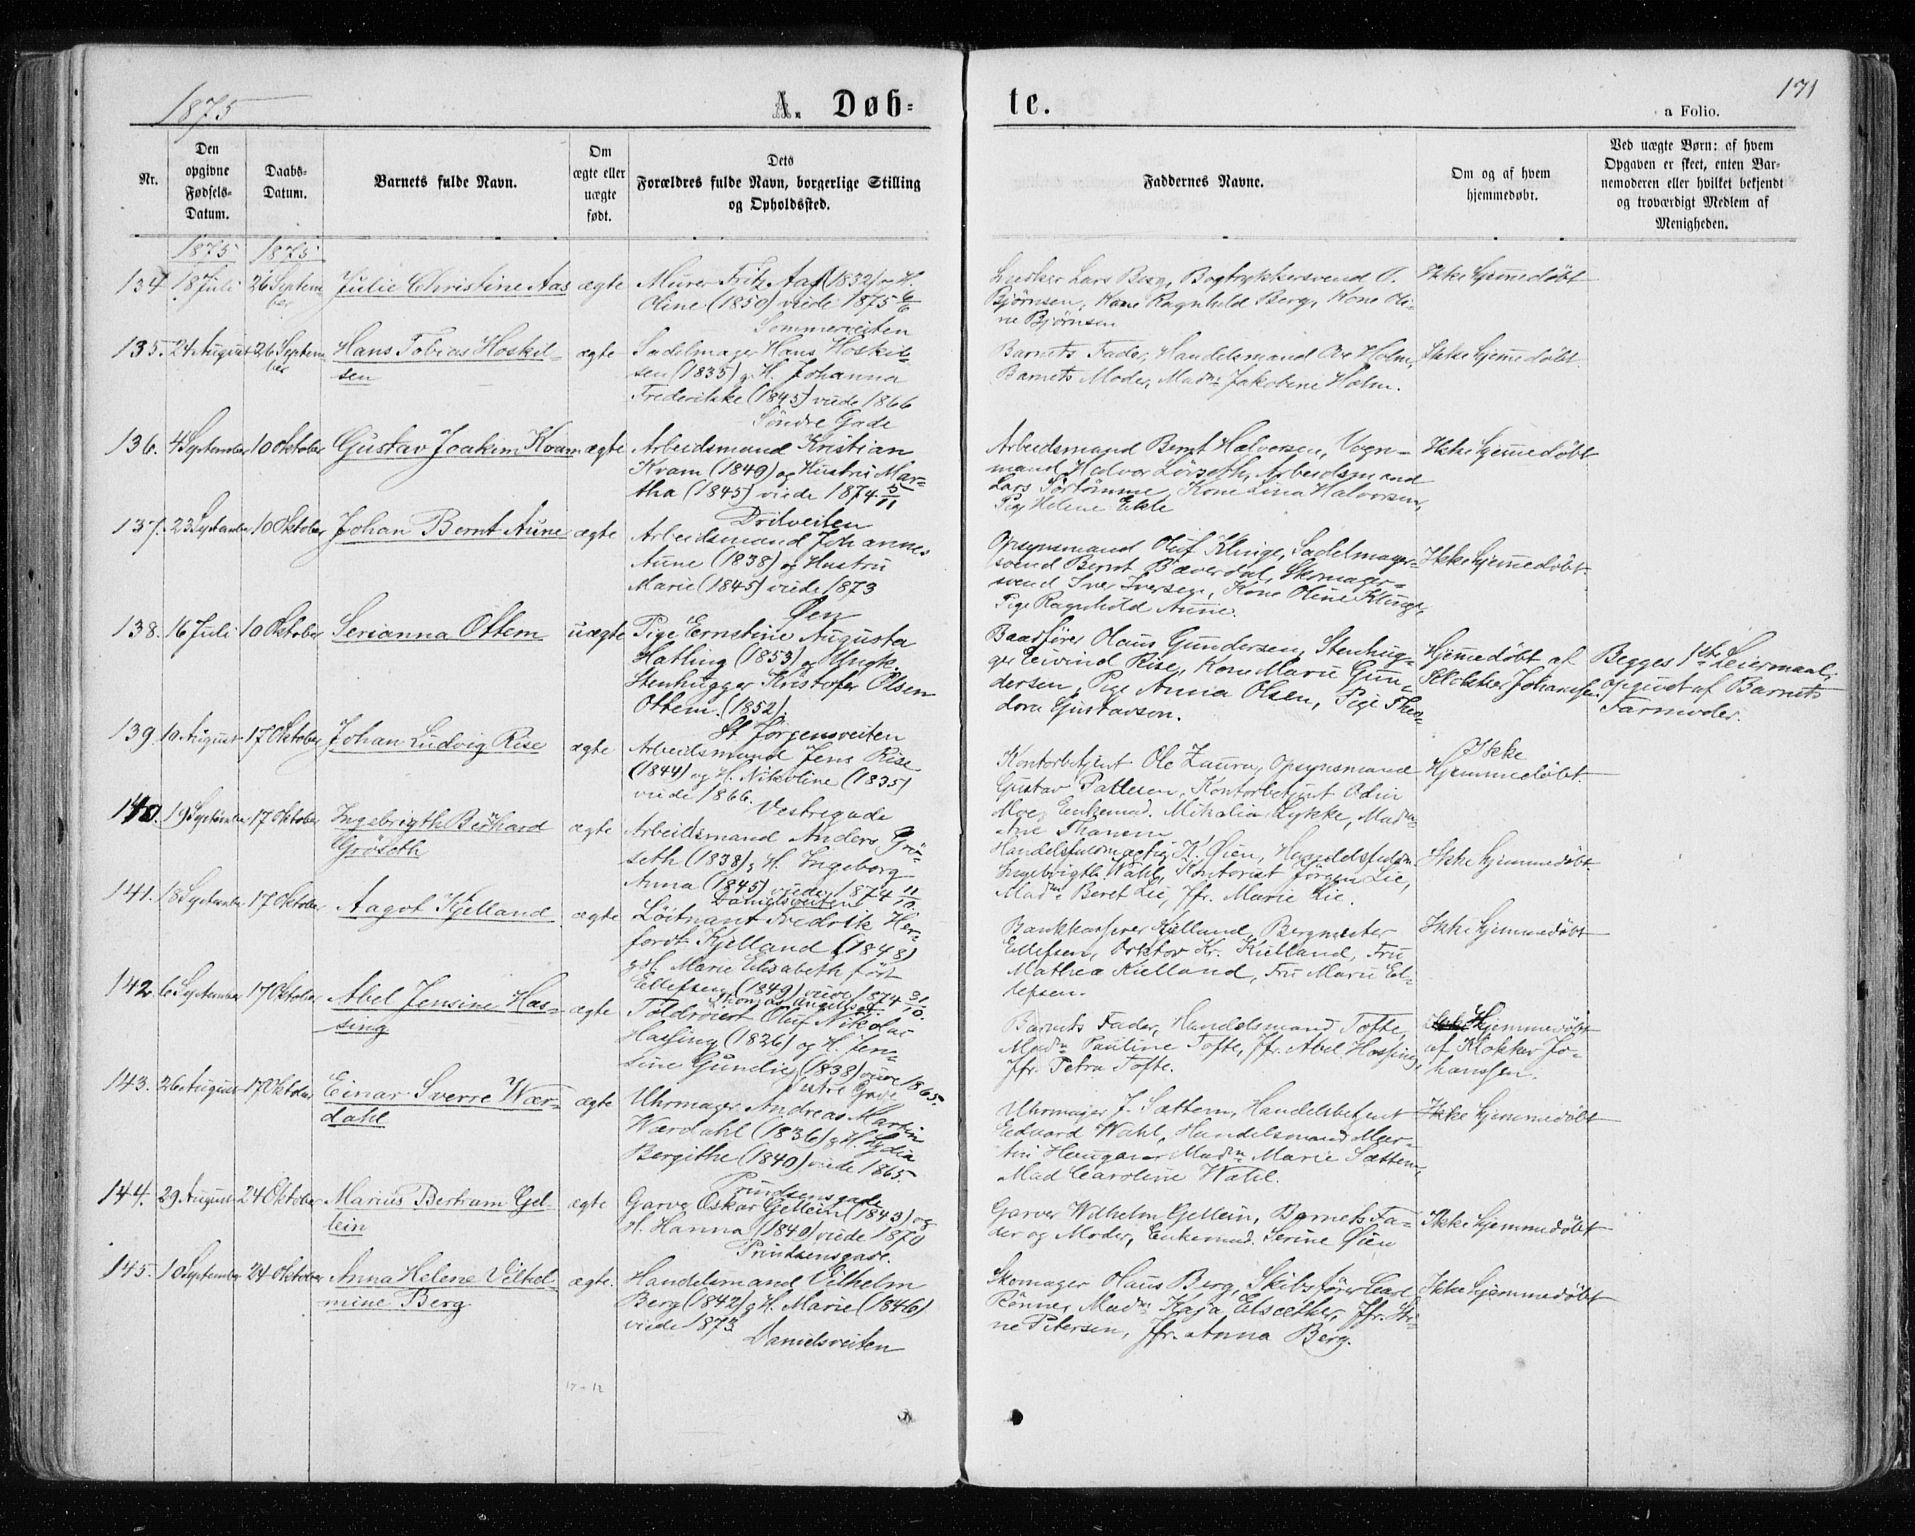 1875
A. Døb-
te.
171
a Folio.
Nr.
Den opgivne Fødsels-Datum.
Daabs-Datum.
Barnets fulde Navn.
Om ægte eller uægte født.
Dets Forældres fulde Navn, borgerlige Stilling og Opholdssted.
Faddernes Navne.
Om og af hvem hjemmedøbt.
Ved uægte Børn: af hvem Opgaven er skeet, enten Barnemoderen eller hvilket bekjendt og troværdigt Medlem af Menigheden.
1875 1875
134 18 Juli 26 Septem-
ber
Julie Christine Aas
ægte
Murer Fritz Aas (1852) og H.
Oline (1850) viede 1875 6/6
Sommerveiten
Lars Berg, Bogtrykkersvend O.
Bjørnsen, Kone Ragnhild Berg, Kone Oli-
ne Bjørnsen
Ikke hjemmedøbt
135. 24 August 26 Septem-
ber
Hans Tobias Hoskil-
sen
ægte
Sadelmager Hans Hoskil-
sen (1835) og H. Johanna
Frederikke (1845) viede 1866
Söndre Gade
Barnets Fader, Handelsmand Ole Holm,
Barnets Moder, Madm Jakobine Holm.
Ikke hjemmedøbt
136. 4 September 10 Oktober
Gustav Joakim Kvam
ægte
Arbeidsmand Kristian
Kvam (1849) og Hustru Mar-
tha (1845) viede 1874 5/11
Dritveiten
Arbeidsmand Bernt Halversen, Vogn-
mand Halvor Lövseth, Arbeidsmand
Lars Sörtömme, Kone Lina Halvorsen,
Pige Helene Ekle
Ikke hjemmedøbt
137. 23 September 10 Oktober
Johan Bernt Aune
ægte
Arbeidsmand Johannes
Aune (1838) og Hustru
Marie (1845) viede 1873
Øen
Opsynsmand Oluf Klinge, Sadelmager-
svend Bernt Bæverdal, Skomager-
svend Iver Iversen, Kone Oline Klinge,
Pige Ragnhild Aune.
Ikke hjemmedøbt.
138. 16 Juli 10 Oktober
Serianna Ottem
uægte
Pige Ernstine Augusta
Hatling (1853) og Ungk.
Stenhugger Kristofer Olsen
Ottem (1852).
St Jørgensveiten
Baadfører Hans Gundersen, Stenhug-
ger Eivind Rise, Kone Marie Gun-
dersen, Pige Anna Olsen, Pige Theo-
dora Gustavson.
Hjemmedøbt af
Klokker Johanssen
Begges 1ste Leiermaal,
opgivet af Barnets
Farmoder.
139 10 August 17 Oktober
Johan Ludvig Rise
ægte
Arbeidsmand Jens Rise
(1844) og H. Nikoline (1835)
viede 1866.
Vestregade
Kontorbetjent Ole Laura, Opsynsmand
Gustav Pallesen, Kontorbetjent Odin
Moe, Enkemad. Mikalia Lykke, Madm
Ane Thanem
Ikke
Hjemmedøbt.
140. 19 September 17 Oktober
Ingebrigth Bernhard
Gröseth
ægte
Arbeidsmand Anders Grö-
seth (1838) og H. Ingeborg
Anna (1845) viede 1874 11/10.
Danielsveiten
Handelsfuldmægtig K. Øien, Handelsfuldm.
Ingebrigth Wahl, Kontorist Jörgen Lie,
Madm Beret Lie, Jfr. Marie Lie.
Ikke hjemmedøbt.
141. 18 September 17 Oktober
Aagot Kjelland
ægte
Löitnant Fredrik Her-
fordt Kjelland (1848)
og H. Marie Elisabeth født
Ellefsen (1849) viede 1874 31/10.
Thomas Angells Gd.
Bankkasserer Kielland, Bergmester
Ellefsen, Doktor Kr. Kielland, Fru
Mathea Kielland, Fru Marie El-
lefsen.
Ikke hjemmedøbt
142. 6 September 17 Oktober
Abel Jensine Has-
sing
ægte
Toldroiert Oluf Nikolai
Hassing (1836) og H. Jen-
sine Gundie (1838) viede 1865.
Barnets Fader, Handelsmand Tofte,
Madm Pauline Tofte, Jfr. Abel Hassing,
Jfr. Petra Tofte.
Hjemmedøbt
af Klokker Jo-
hanssen.
143. 26 August 17 Oktober
Einar Sverre Wær-
dahl
ægte
Uhrmager Andreas Martin
Wærdahl (1836) og H. Lydia
Bergithe (1840) viede 1865.
Prindsensgade
Uhrmager J. Sættem, Handelsbetjent
Edvard Wahl, Handelsmand Mar-
tin Haugan, Madm Marie Sættem,
Mad Caroline Wahl.
Ikke hjemmedøbt
144. 29 August 24 Oktober
Marius Bertram Gel-
lein
ægte
Garver Oskar Gellein (1843) og
H. Hanna (1840) viede 1870
Prindsensgade.
Garver Wilhelm Gellein, Barnets Fa-
der og Moder, Enkemad. Serine Øien
Ikke hjemmedøbt
145. 10 September 24 Oktober
Anna Helene Vilhel-
mine Berg
ægte.
Handelsmand Vilhelm
Berg (1842) og H. Marie (1846)
viede 1873
Danielsveiten
Skomager Hans Berg, Skibsfører Carl
Rönner, Madm Kaja Elsæther, Jfr. Sti-
ne Petersen, Jfr. Anna Berg.
Ikke hjemmedøbt